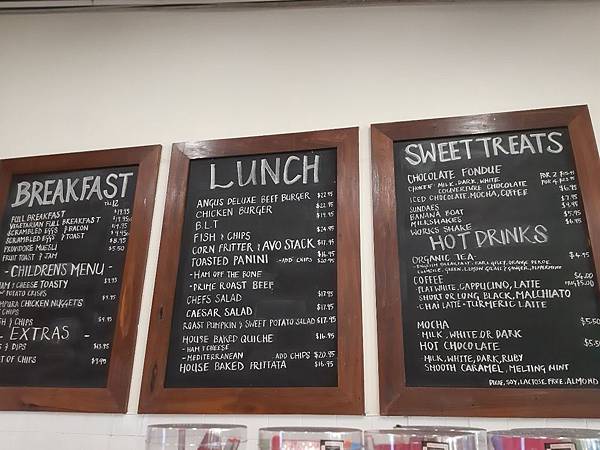 BREAKFAST TILL 12
FULL BREAKFAST $19.95
VEGETARIAN FULL BREAKFAST $19.95
SCRAMBLED EGGS & BACON
SCRAMBLED EGGS & TOAST
MUESLI
FRUIT TOAST & JAM $5.50
- CHILDRENS MENU -
& CHEESE TOASTY
POTATO CRISPS
CHICKEN NUGGETS
& CHIPS
EXTRAS
& DIPS
OF CHIPS
LUNCH
ANGUS DELUXE BEEF BURGER $22.95
CHICKEN BURGER
B.L.T
FISH & CHIPS $24.95
CORN FRITTER & AVO STACK $19.95
TOASTED PANINI - AND CHIPS $20.95
- HAM OFF THE BONE
- PRIME ROAST BEEF
CHEFS SALAD $17.95
CAESAR SALAD $17.95
ROAST PUMPKIN & SWEET POTATO SALAD $17.95
HOUSE BAKED QUICHE $16.95
- HAM & CHEESE
- MEDITERRANEAN ADD CHIPS $20.95
HOUSE BAKED FRITTATA $16.95
SWEET TREATS
CHOCOLATE FONDUE FOR 2
CHOICE MILK, DARK, WHITE FOR 4
COUVERTURE CHOCOLATE
ICED CHOCOLATE, MOCHA, COFFEE $6.95
SUNDAES
BANANA BOAT
MILKSHAKES $5.95
WORKS SHAKE $6.95
HOT DRINKS
ORGANIC TEA $4.95
- ENGLISH BREAKFAST, EARL GREY, ORANGE PEKOE
GREEN, LEMON GRASS & GINGER, PEPPERMINT
COFFEE $4.00
- FLAT WHITE, CAPPUCCINO, LATTE MUG $5.00
SHORT OR LONG, BLACK, MACCHIATO
- CHAI LATTE - TURMERIC LATTE
MOCHA $5.50
- MILK, WHITE OR DARK
HOT CHOCOLATE $5.50
- MILK, WHITE, DARK, RUBY
SMOOTH CARAMEL, MELTING MINT
SOY, LACTOSE FREE, ALMOND